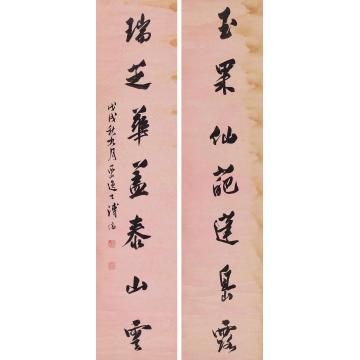 玉果仙葩蓬島露
瑞芝華蓋泰山雲
戊戌秋九月